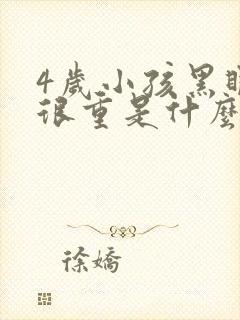 4歲小孩黑
很重是什麼
徐嬌